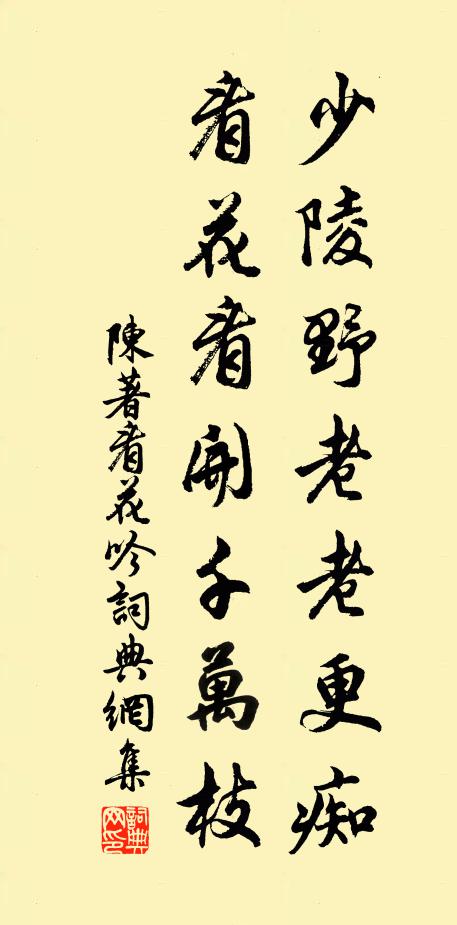 少陵野老老更痴
看花看開千萬枝
陳著看花吟詞典網集
詞典网印